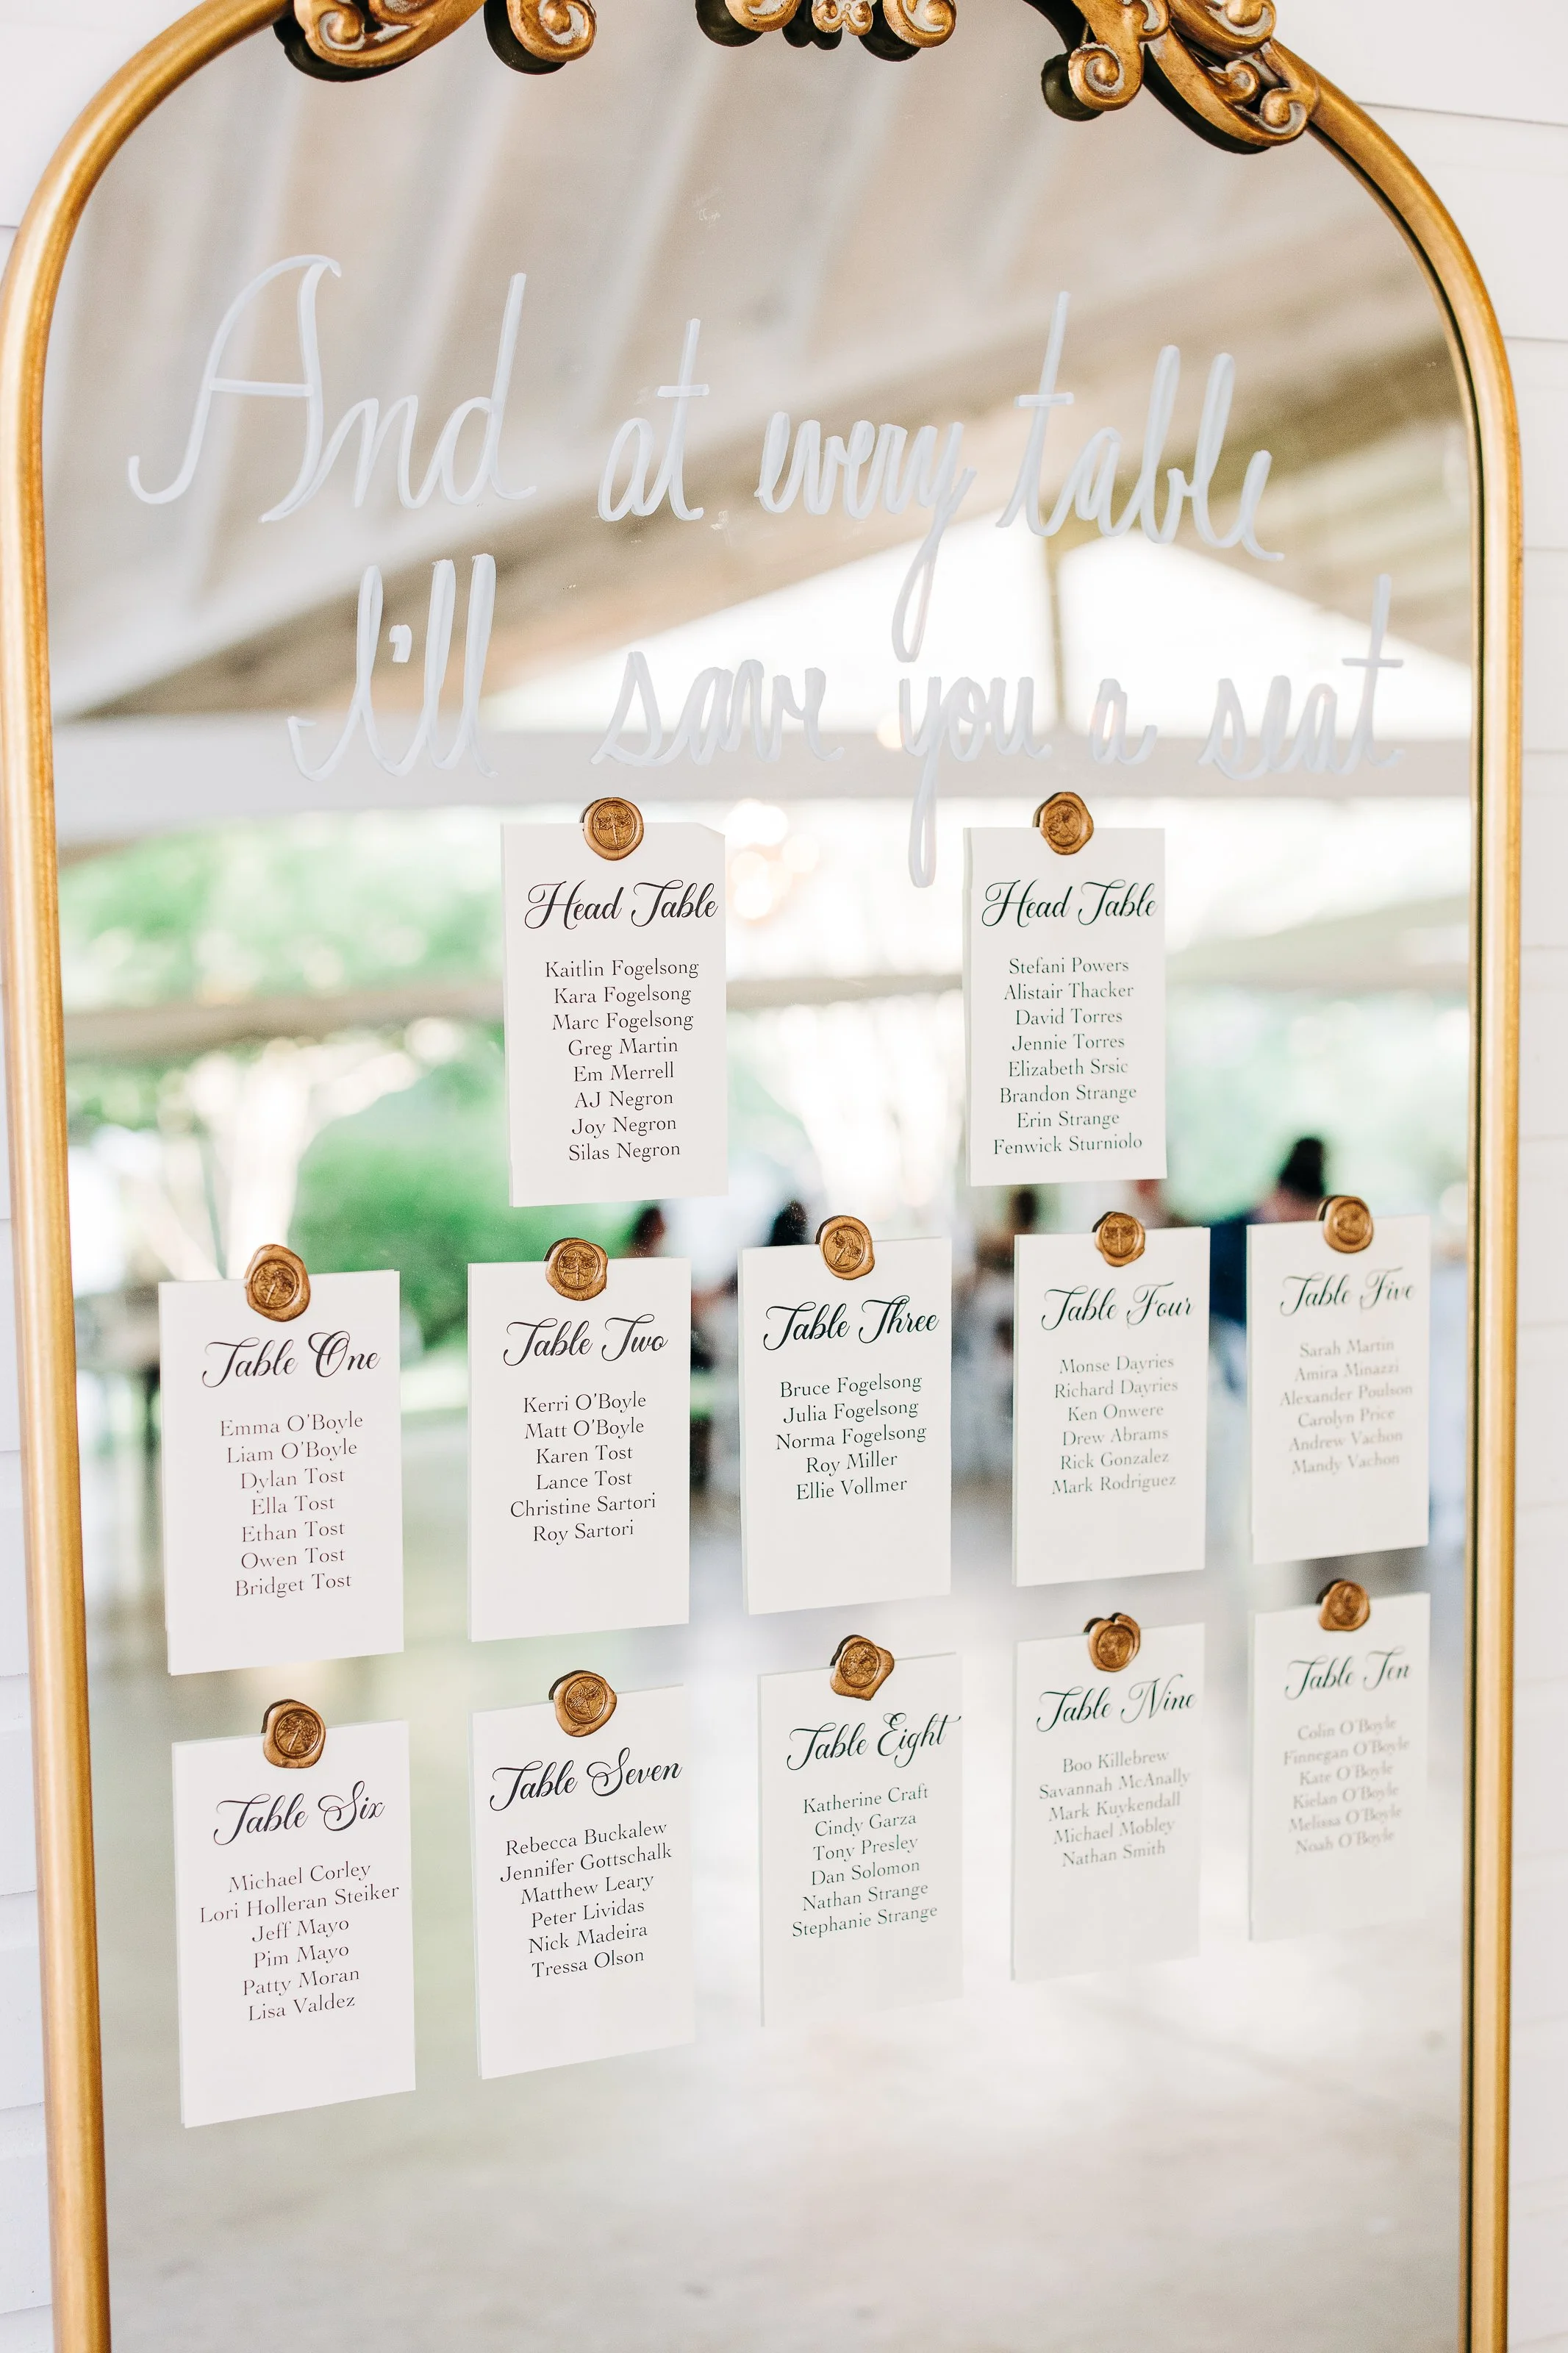 And at every table
I'll save you a seat
Head Table
Kaitlin Fogelsong
Kara Fogelsong
Marc Fogelsong
Greg Martin
Em Merrell
AJ Negron
Joy Negron
Silas Negron
Head Table
Stefani Powers
Alistair Thacker
David Torres
Jennie Torres
Elizabeth Srsic
Brandon Strange
Erin Strange
Fenwick Sturniolo
Table One
Emma O'Boyle
Liam O'Boyle
Dylan Tost
Ella Tost
Ethan Tost
Owen Tost
Bridget Tost
Table Two
Kerri O'Boyle
Matt O'Boyle
Karen Tost
Lance Tost
Christine Sartori
Roy Sartori
Table Three
Bruce Fogelsong
Julia Fogelsong
Norma Fogelsong
Roy Miller
Ellie Vollmer
Table Four
Monse Dayries
Richard Dayries
Ken Onwere
Drew Abrams
Rick Gonzalez
Mark Rodriguez
Table Five
Sarah Martin
Amira Minazzi
Alexander Poulson
Carolyn Price
Andrew Vachon
Mandy Vachon
Table Six
Michael Corley
Lori Holleran Steiker
Jeff Mayo
Pim Mayo
Patty Moran
Lisa Valdez
Table Seven
Rebecca Buckalew
Jennifer Gottschalk
Matthew Leary
Peter Lividas
Nick Madeira
Tressa Olson
Table Eight
Katherine Craft
Cindy Garza
Tony Presley
Dan Solomon
Nathan Strange
Stephanie Strange
Table Nine
Boo Killebrew
Savannah McAnally
Mark Kuykendall
Michael Mobley
Nathan Smith
Table Ten
Colin O'Boyle
Finnegan O'Boyle
Kate O'Boyle
Kielan O'Boyle
Melissa O'Boyle
Noah O'Boyle